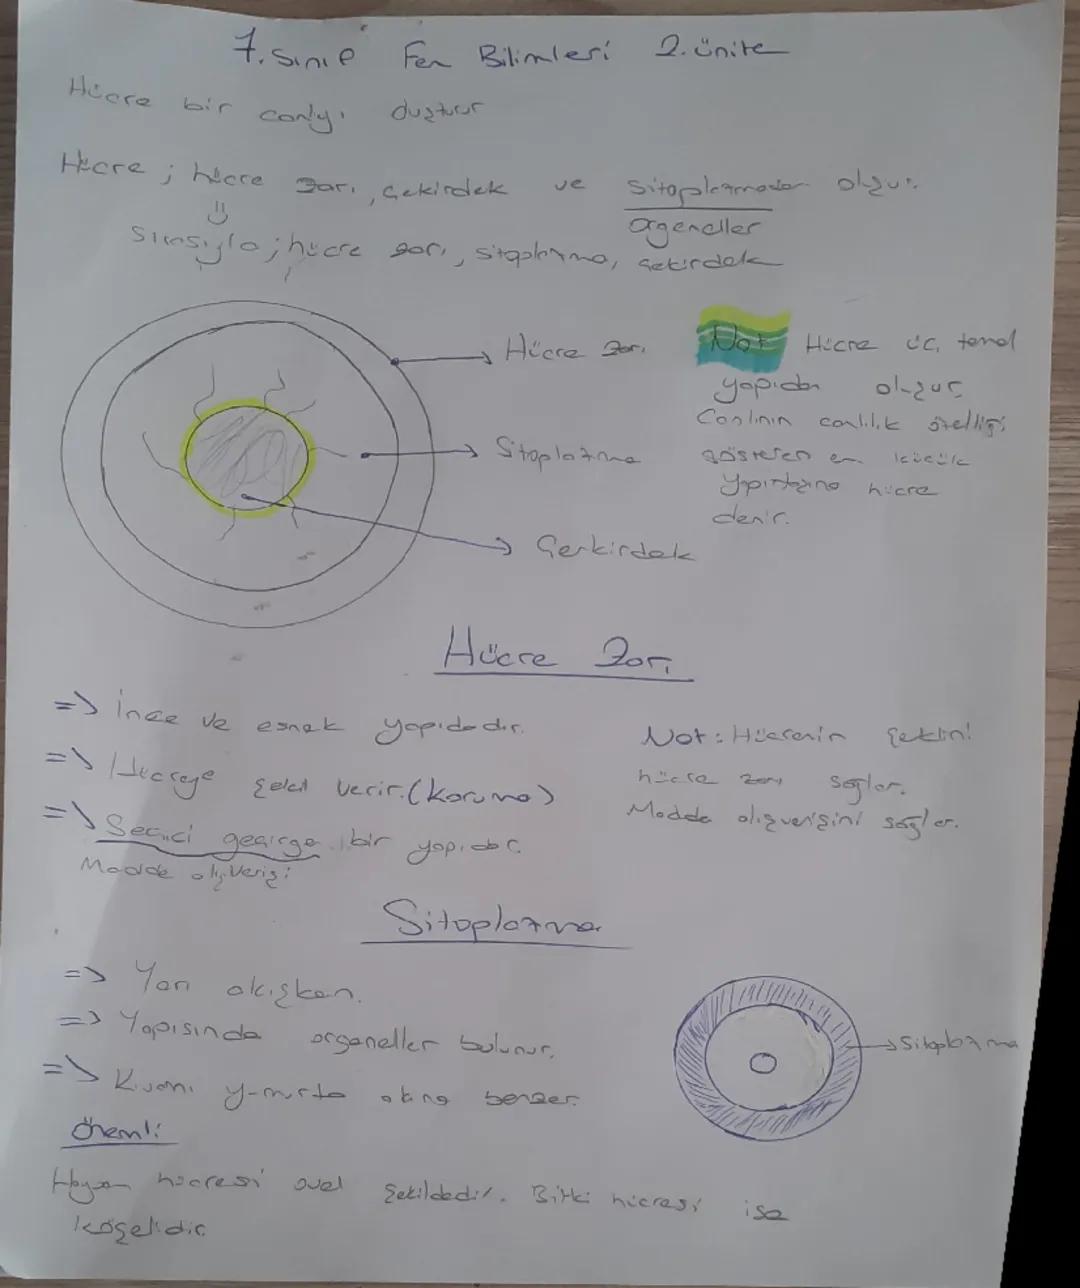 7. Sınıf Fen Bilimleri 2. ünite
Hücre bir canlıyı oluşturur
Hücre ; hücre zarı, çekirdek ve sitoplazmadan oluşur.
organeller
Sırasıyla ; hücre zarı, sitoplazma, çekirdek
Hücre zarı
Sitoplazma
Çerkirdek
Not Hücre üç temel
yapıdan oluşur.
Canlının canlılık özelliği
gösteren en küçük
yapıtaşına hücre
denir.
Hücre Zarı
=> İnce ve esnek yapıdadır.
=> Hücreye şekil verir. (Koruma)
=> Seçici geçirgen bir yapıdır.
Madde alışverişi
Not : Hücrenin şeklini
hücre zarı sağlar.
Madde alışverişini sağlar.
Sitoplazma
=> Yarı akışkan.
=> Yapısında organeller bulunur.
=> Kıvamı yumurta akına benzer.
Sitoplazma
Önemli
Hayvan hücresi oval şekildedir. Bitki hücresi ise
köşelidir.